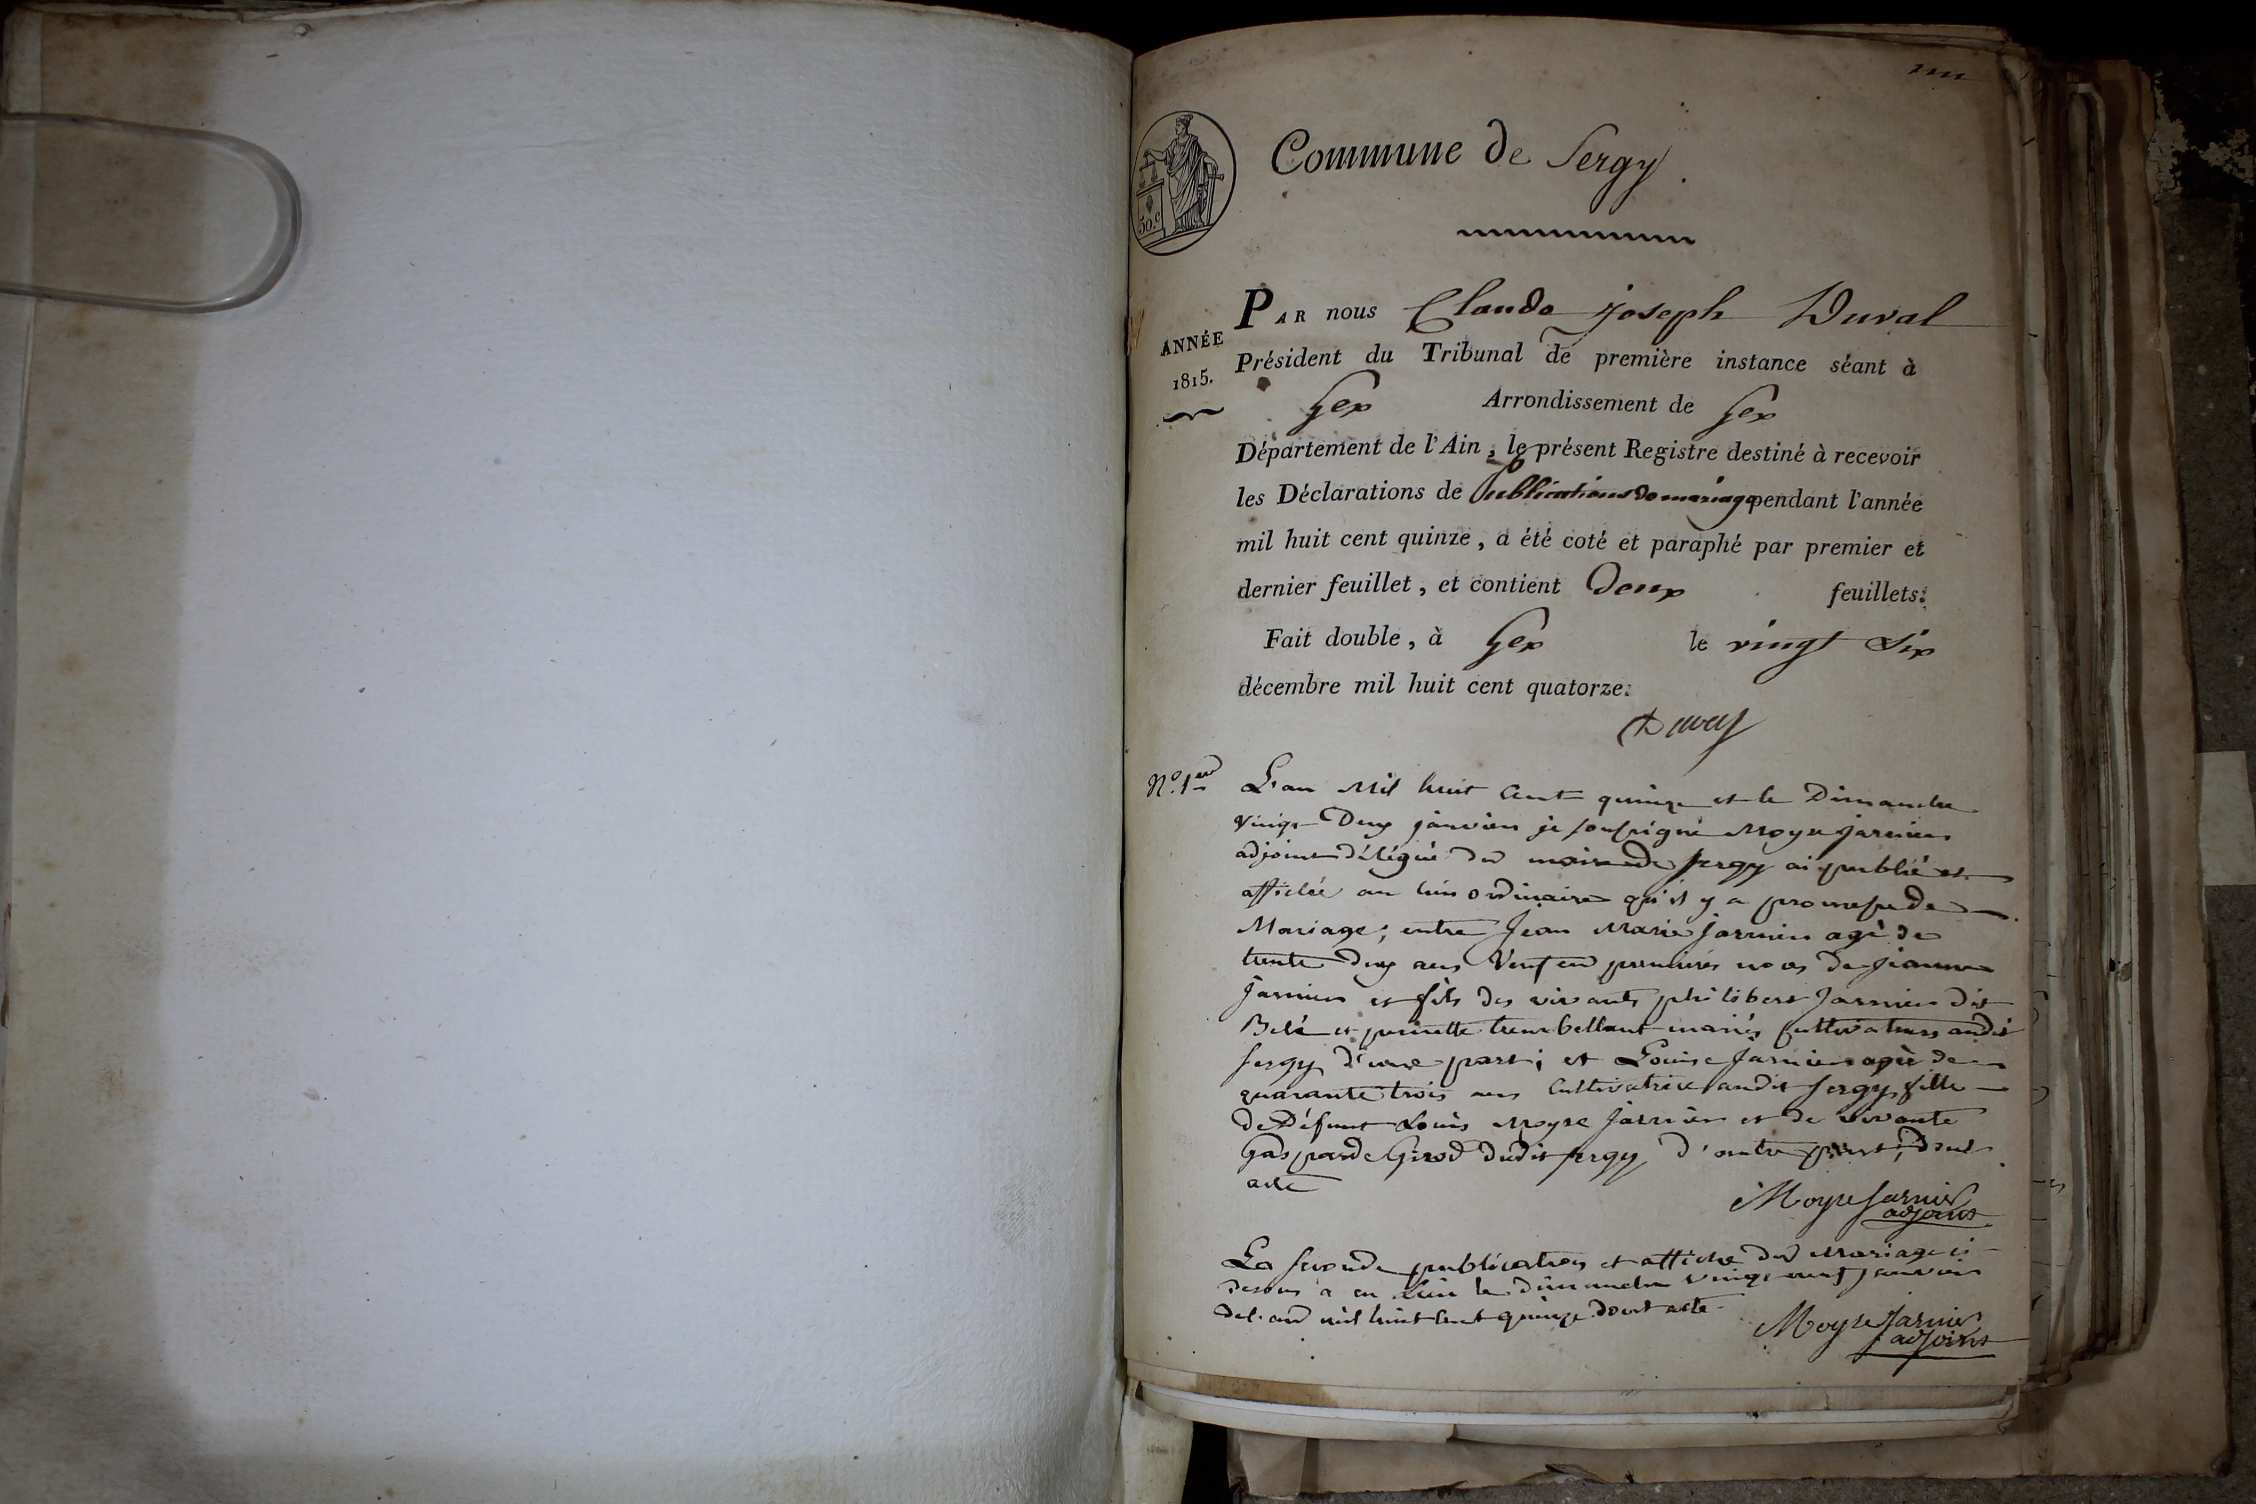 Commune de Sergy.
50.c
ANNÉE
1815.
PAR nous Claude joseph Duval
Président du Tribunal de première instance séant à
Gex Arrondissement de Gex
Département de l'Ain, le présent Registre destiné à recevoir
les Déclarations de publications de mariage pendant l'année
mil huit cent quinze, a été coté et paraphé par premier et
dernier feuillet, et contient Deux feuillets.
Fait double, à Gex le vingt Six
décembre mil huit cent quatorze.
Duval
N.º 1er
L'an Mil huit Cent quinze et le Dimanche
vingt Deux janvier je soussigné Moyse jarnier
adjoint délégué du maire de Sergy ai publié et
affiché au lieu ordinaire qu'il y a promesse de
Mariage; entre Jean Marie Jarnier agé de
trente deux ans Veuf en premières noces de jeanne
jarnier et fils des vivants philibert Jarnier dit
et pernette mariés cultivateurs audit
Sergy d'une part; et Louise Jarnier agée de
quarante trois ans Cultivatrice audit Sergy fille
de Défunt Louis Moyse Jarnier et de vivante
Gasparde Girod dudit Sergy d'autre part; dont
acte
Moyse Jarnier
adjoint
La seconde publication et affiche du Mariage ci
dessus a eu Lieu le dimanche vingt neuf janvier
de l'an mil huit cent quinze dont acte
Moyse Jarnier
adjoint